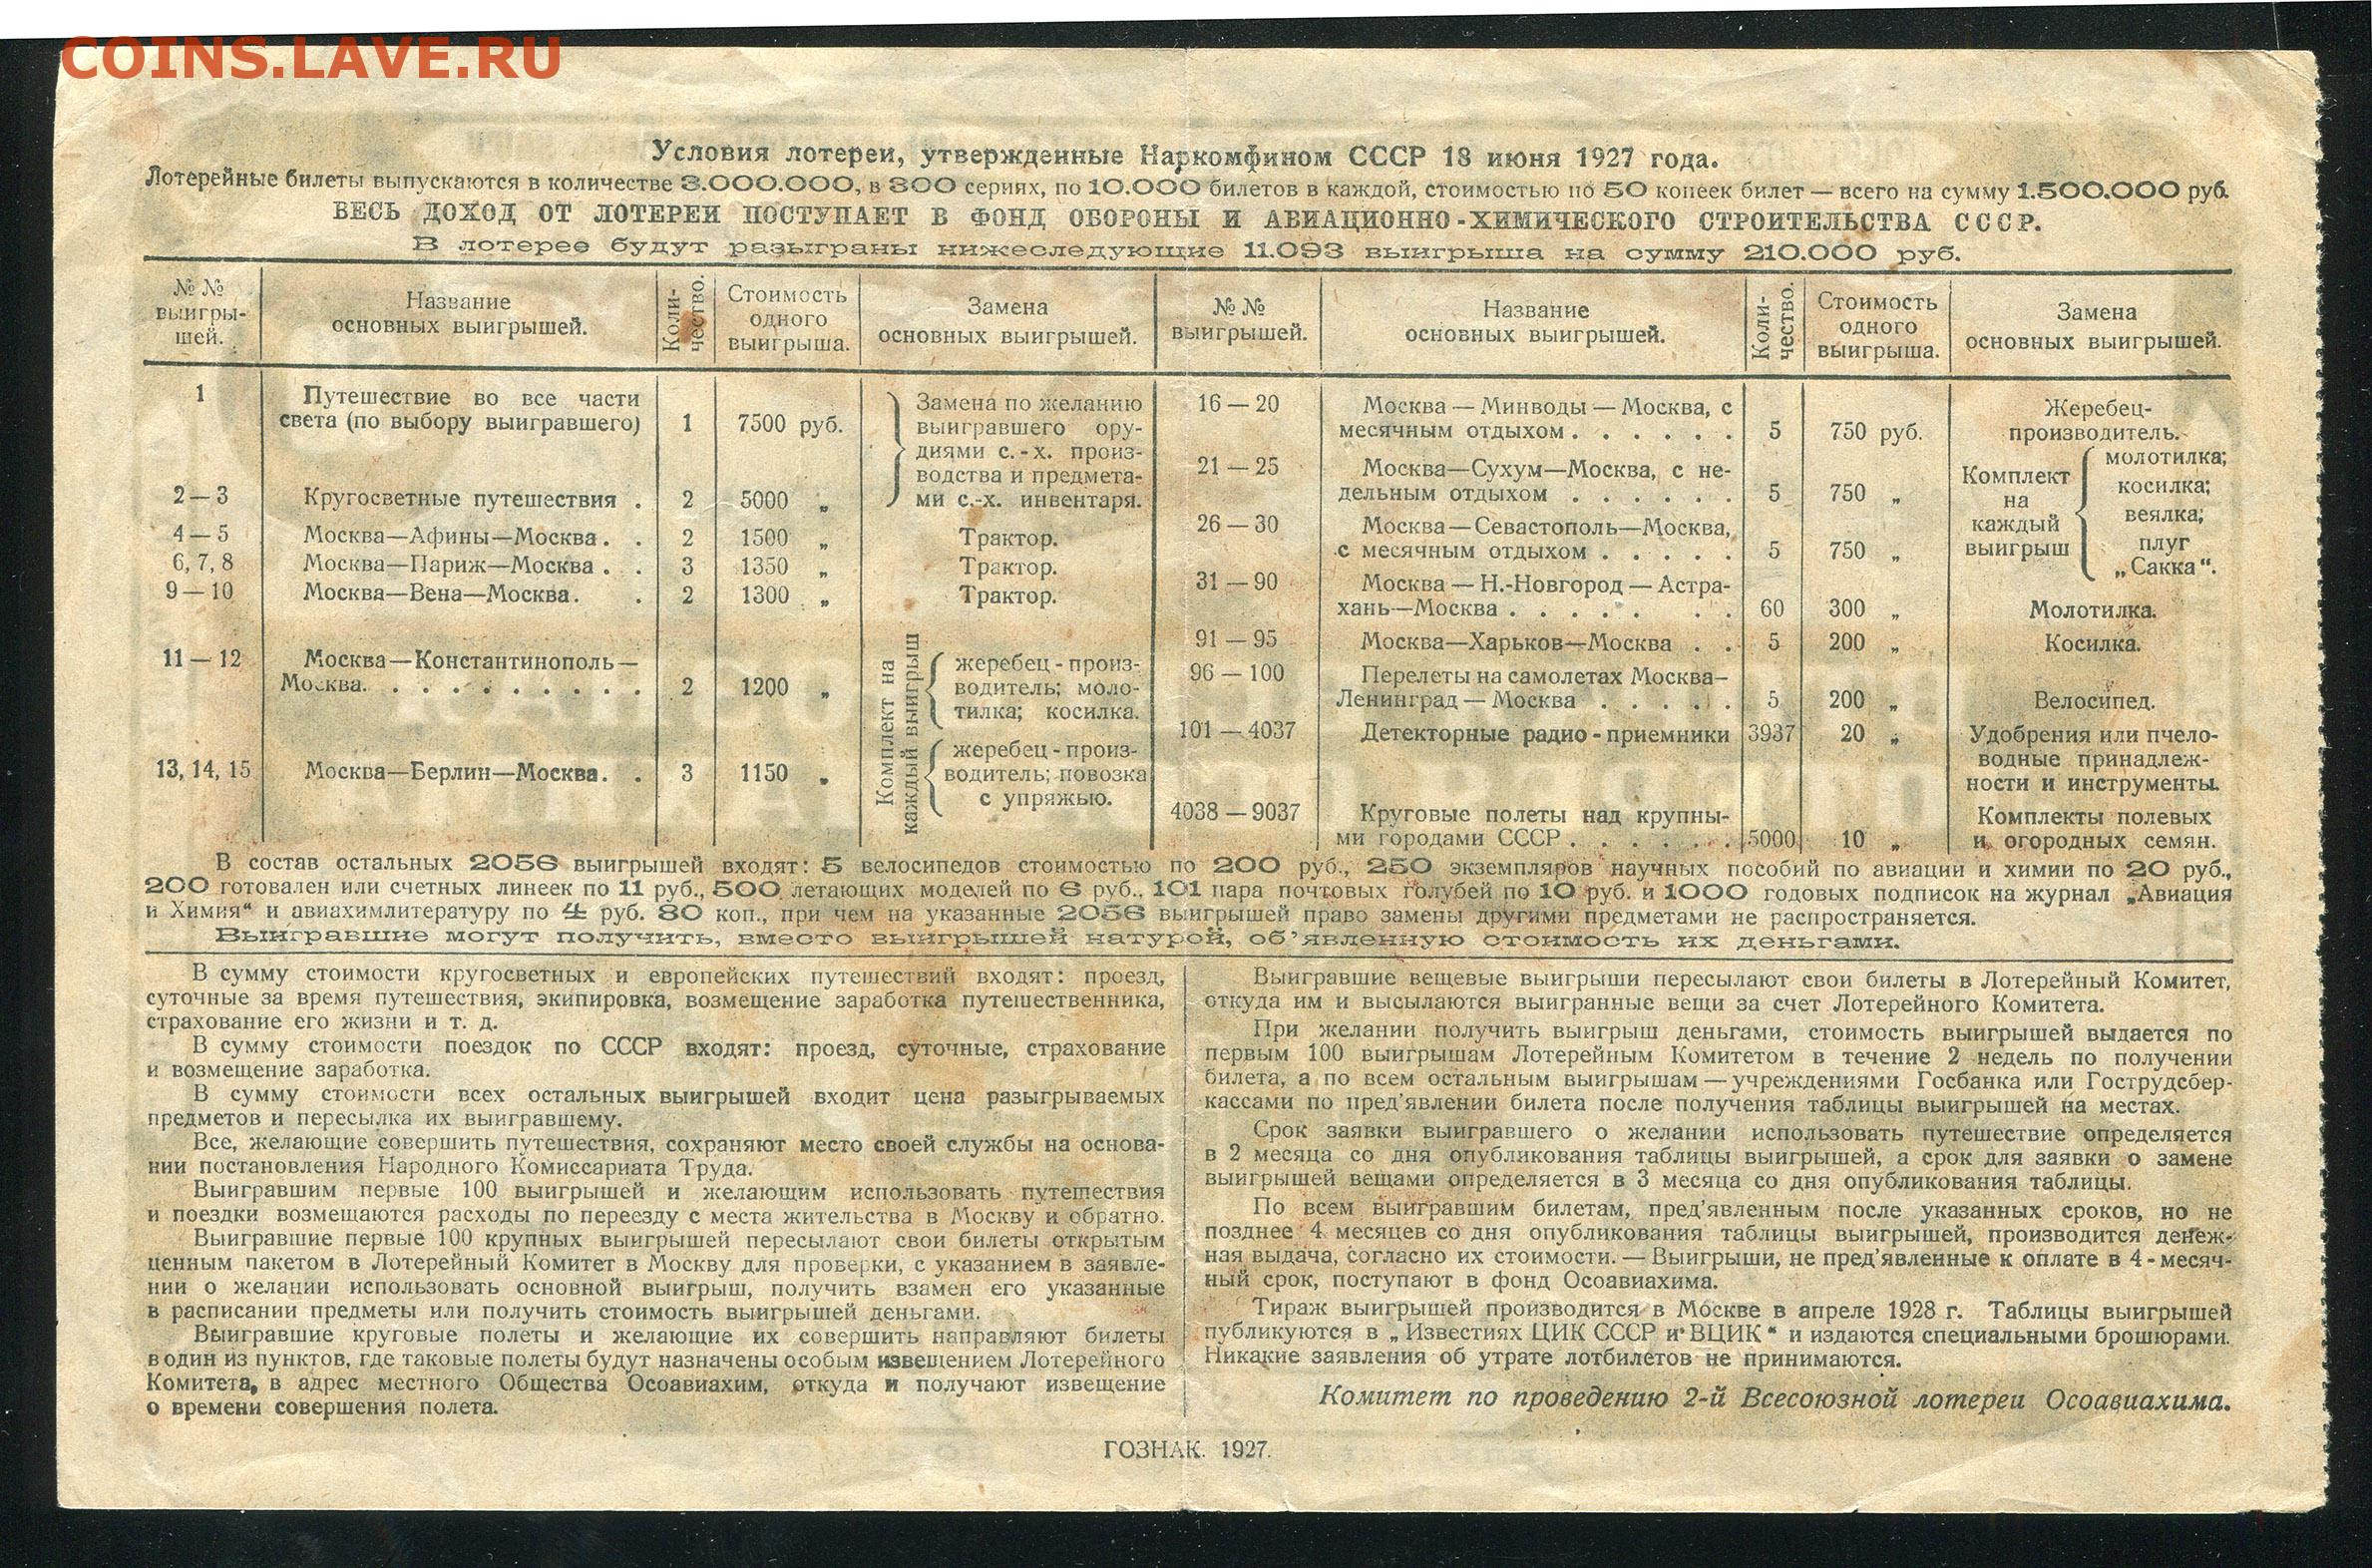 COINS.LAVE.RU
Условия лотереи, утвержденные Наркомфином СССР 18 июня 1927 года.
Лотерейные билеты выпускаются в количестве 3.000.000, в 300 сериях, по 10.000 билетов в каждой, стоимостью по 50 копеек билет — всего на сумму 1.500.000 руб.
ВЕСЬ ДОХОД ОТ ЛОТЕРЕИ ПОСТУПАЕТ В ФОНД ОБОРОНЫ И АВИАЦИОННО-ХИМИЧЕСКОГО СТРОИТЕЛЬСТВА СССР.
В лотерее будут разыграны нижеследующие 11.093 выигрыша на сумму 210.000 руб.
№№ выигры-
шей.
Название
основных выигрышей.
Коли-
чество.
Стоимость
одного
выигрыша.
Замена
основных выигрышей.
1
Путешествие во все части
света (по выбору выигравшего)
1
7500 руб.
Замена по желанию
выигравшего ору-
диями с.-х. произ-
водства и предмета-
ми с.-х. инвентаря.
2—3
Кругосветные путешествия .
2
5000 „
4—5
Москва—Афины—Москва. .
2
1500 „
Трактор.
6, 7, 8
Москва—Париж—Москва . .
3
1350 „
Трактор.
9—10
Москва—Вена—Москва. .
2
1300 „
Трактор.
11—12
Москва—Константинополь—
Москва. . . . . . . . . .
2
1200 „
Комплект на
каждый выигрыш
жеребец-произ-
водитель; моло-
тилка; косилка.
13, 14, 15
Москва—Берлин—Москва. .
3
1150 „
жеребец-произ-
водитель; повозка
с упряжью.
№№
выигрышей.
Название
основных выигрышей.
Коли-
чество.
Стоимость
одного
выигрыша.
Замена
основных выигрышей.
16—20
Москва—Минводы—Москва, с
месячным отдыхом . . . . . .
5
750 руб.
Жеребец-
производитель.
21—25
Москва—Сухум—Москва, с не-
дельным отдыхом . . . . . .
5
750 „
Комплект
на
каждый
выигрыш
молотилка;
косилка;
веялка;
плуг
„Сакка“.
26—30
Москва—Севастополь—Москва,
с месячным отдыхом . . . . .
5
750 „
31—90
Москва—Н.-Новгород—Астра-
хань—Москва . . . . . .
60
300 „
Молотилка.
91—95
Москва—Харьков—Москва . .
5
200 „
Косилка.
96—100
Перелеты на самолетах Москва—
Ленинград—Москва . . . . .
5
200 „
Велосипед.
101—4037
Детекторные радио-приемники
3937
20 „
Удобрения или пчело-
водные принадлеж-
ности и инструменты.
4038—9037
Круговые полеты над крупны-
ми городами СССР . . . . . .
5000
10 „
Комплекты полевых
и огородных семян.
В состав остальных 2056 выигрышей входят: 5 велосипедов стоимостью по 200 руб., 250 экземпляров научных пособий по авиации и химии по 20 руб.,
200 готовален или счетных линеек по 11 руб., 500 летающих моделей по 6 руб., 101 пара почтовых голубей по 10 руб. и 1000 годовых подписок на журнал „Авиация
и Химия“ и авиахимлитературу по 4 руб. 80 коп., при чем на указанные 2056 выигрышей право замены другими предметами не распространяется.
Выигравшие могут получить, вместо выигрышей натурой, об'явленную стоимость их деньгами.
В сумму стоимости кругосветных и европейских путешествий входят: проезд,
суточные за время путешествия, экипировка, возмещение заработка путешественника,
страхование его жизни и т. д.
В сумму стоимости поездок по СССР входят: проезд, суточные, страхование
и возмещение заработка.
В сумму стоимости всех остальных выигрышей входит цена разыгрываемых
предметов и пересылка их выигравшему.
Все, желающие совершить путешествия, сохраняют место своей службы на основа-
нии постановления Народного Комиссариата Труда.
Выигравшим первые 100 выигрышей и желающим использовать путешествия
и поездки возмещаются расходы по переезду с места жительства в Москву и обратно.
Выигравшие первые 100 крупных выигрышей пересылают свои билеты открытым
ценным пакетом в Лотерейный Комитет в Москву для проверки, с указанием в заявле-
нии о желании использовать основной выигрыш, получить взамен его указанные
в расписании предметы или получить стоимость выигрышей деньгами.
Выигравшие круговые полеты и желающие их совершить направляют билеты
в один из пунктов, где таковые полеты будут назначены особым извещением Лотерейного
Комитета, в адрес местного Общества Осоавиахим, откуда и получают извещение
о времени совершения полета.
Выигравшие вещевые выигрыши пересылают свои билеты в Лотерейный Комитет,
откуда им и высылаются выигранные вещи за счет Лотерейного Комитета.
При желании получить выигрыш деньгами, стоимость выигрышей выдается по
первым 100 выигрышам Лотерейным Комитетом в течение 2 недель по получении
билета, а по всем остальным выигрышам—учреждениями Госбанка или Гострудсбер-
кассами по пред'явлении билета после получения таблицы выигрышей на местах.
Срок заявки выигравшего о желании использовать путешествие определяется
в 2 месяца со дня опубликования таблицы выигрышей, а срок для заявки о замене
выигрышей вещами определяется в 3 месяца со дня опубликования таблицы.
По всем выигравшим билетам, пред'явленным после указанных сроков, но не
позднее 4 месяцев со дня опубликования таблицы выигрышей, производится денеж-
ная выдача, согласно их стоимости.—Выигрыши, не пред'явленные к оплате в 4-месяч-
ный срок, поступают в фонд Осоавиахима.
Тираж выигрышей производится в Москве в апреле 1928 г. Таблицы выигрышей
публикуются в „Известиях ЦИК СССР и ВЦИК“ и издаются специальными брошюрами.
Никакие заявления об утрате лотбилетов не принимаются.
Комитет по проведению 2-й Всесоюзной лотереи Осоавиахима.
ГОЗНАК. 1927.